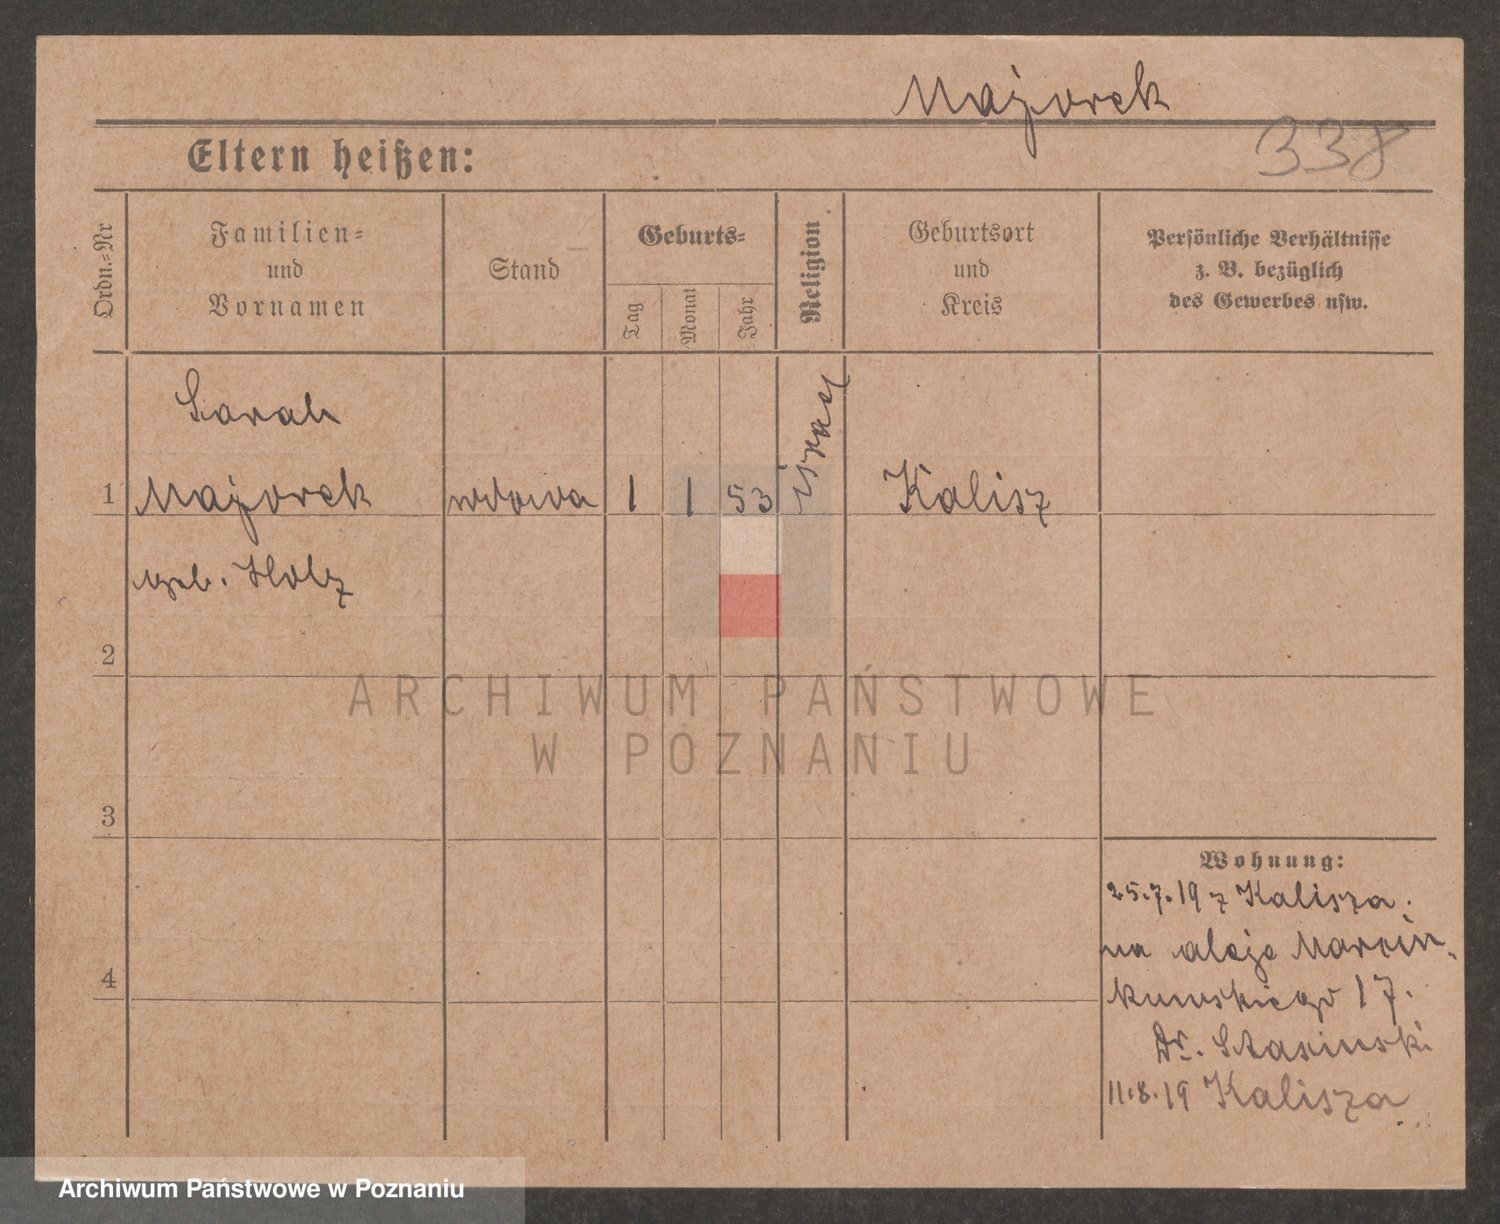 Majorek
338
Eltern heißen:
Ordn.=Nr
Familien=
und
Vornamen
Stand
Geburts=
Tag
Monat
Jahr
Religion
Geburtsort
und
Kreis
Persönliche Verhältnisse
z. B. bezüglich
des Gewerbes usw.
Sarah
1 Majorek wdowa 1 1 53 israel Kalisz
geb. Holz
2
3
4
Wohnung:
25.7.19 z Kalisza.
na aleje Marcin-
kowskiego 17.
Dr. Stasinski
11.8.19 Kalisza
ARCHIWUM PAŃSTWOWE
W POZNANIU
Archiwum Państwowe w Poznaniu